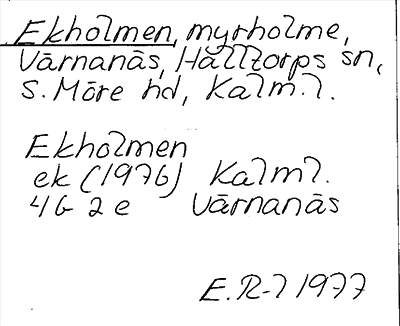 Ekholmen, myrholme,
Värnanäs, Halltorps sn,
S. Möre hd, Kalm.l.
Ekholmen
ek (1976) Kalm l.
4G 2e Värnanäs
E.R-l 1977